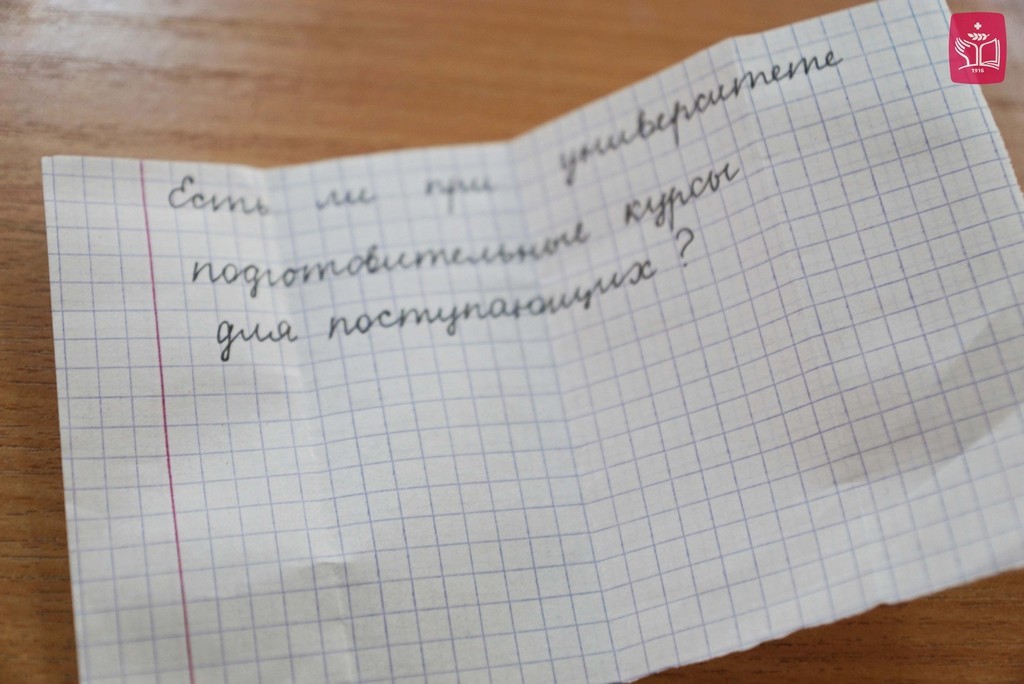 Есть ли при университете
подготовительные курсы
для поступающих?
1916